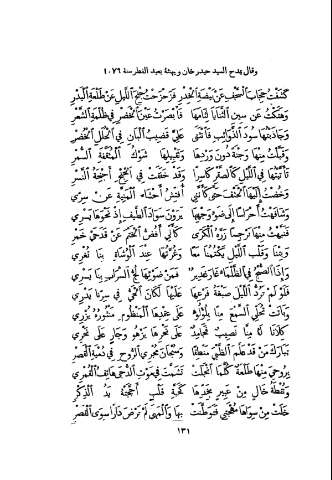 وقال يمدح السيد حيدر خان ويهنئه بعيد الفطر سنة ١٠٧٦
كَشَفَتْ حِجَابَ السِّجْفِ عَنْ بَيْضَةِ الْخِدْرِ فَزَحْزَحْتُ جُنْحَ اللَّيْلِ عَنْ طَلْعَةِ الْبَدْرِ
وَهَتَكْتُ عَنْ سِينِ الثَّنَايَا لِثَامَهَا فَأَبْصَرْتُ عَيْنَ الْخِضْرِ فِي ظُلْمَةِ الشَّعْرِ
وَجَاذَبْتُهَا سُودَ الذَّوَائِبِ فَانْثَنَى عَلَيَّ قَضِيبُ الْبَانِ فِي الْحُلَلِ الْخُضْرِ
وَقَبَّلْتُ مِنْهَا وَجْنَةً دُونَ وَرْدِهَا وَتَقْبِيلِهَا شَوْكُ الْمُثَقَّفَةِ السُّمْرِ
تَأَتَّيْتُهَا فِي اللَّيْلِ كَالصَّقْرِ كَاسِرًا وَقَدْ خَفَقَتْ فِي الْجُنْحِ أَجْنِحَةُ النَّسْرِ
وَخُضْتُ إِلَيْهَا الْحَتْفَ حَتَّى كَأَنَّنِي أُفَتِّشُ أَحْشَاءَ الْمَنِيَّةِ عَنْ سِرِّي
وَشَافَهْتُ أَحْرَاسًا إِلَى ضَوْءِ وَجْهِهَا يَرَوْنَ سَوَادَ الطَّيْفِ إِذْ نَحْوَهَا يَسْرِي
فَنَبَّهْتُ مِنْهَا نَرْجِسًا زَرَّهُ الْكَرَى كَأَنِّي أَفُضُّ الْخَتْمَ عَنْ قَدَحَيْ خَمْرِ
وَبِتْنَا وَقَلْبُ اللَّيْلِ يَكْتُمُنَا مَعًا وَغُرَّتُهَا عِنْدَ الْوُشَاةِ بِنَا تُغْرِي
وَإِذَا الصُّبْحُ فِي الظَّلْمَاءِ غَارَ غَدِيرُهُ فَمِنْ ضَوْئِهَا لُجُّ السَّرَابِ بِنَا يَسْرِي
فَلَوْ لَمْ تَرُدَّ اللَّيْلَ صِبْغَةُ فَرْعِهَا عَلَيْهَا لَكَانَ الْحَيُّ فِي سِرِّنَا يَدْرِي
وَبَاتَتْ تُحَلِّي السَّمْعَ مِنَّا بِلُؤْلُؤٍ عَلَى عِقْدِهَا الْمَنْظُومِ مَنْثُورُهُ يُزْرِي
كِلَانَا لَهُ مِنَّا نَصِيبٌ فَجَامِدٌ عَلَى نَحْرِهَا يَزْهُو وَجَارٍ عَلَى نَحْرِي
تَبَارَكَ مَنْ قَدْ عَلَّمَ الظَّبْيَ مَنْطِقًا وَسُبْحَانَ مُجْرِي الرُّوحِ فِي دُمْيَةِ الْقَصْرِ
بِرُوحِيَ مِنْهَا طَلْعَةٌ كُلَّمَا انْجَلَتْ تَشَمَّتَ فِي مَوْتِ الدُّجَى هَاتِفُ الْقُمْرِي
وَنُقْطَةُ خَالٍ مِنْ عَبِيرٍ بِخَدِّهَا كَحَبَّةِ قَلْبٍ أَجَّجَتْهُ يَدُ الذِّكْرِ
خَلَتْ مِنْ سِوَاهَا مُهْجَتِي فَتَوَطَّنَتْ بِهَا وَالْمَهَا لَمْ تَرْضَ دَارًا سِوَى الْقَفْرِ
١٣١